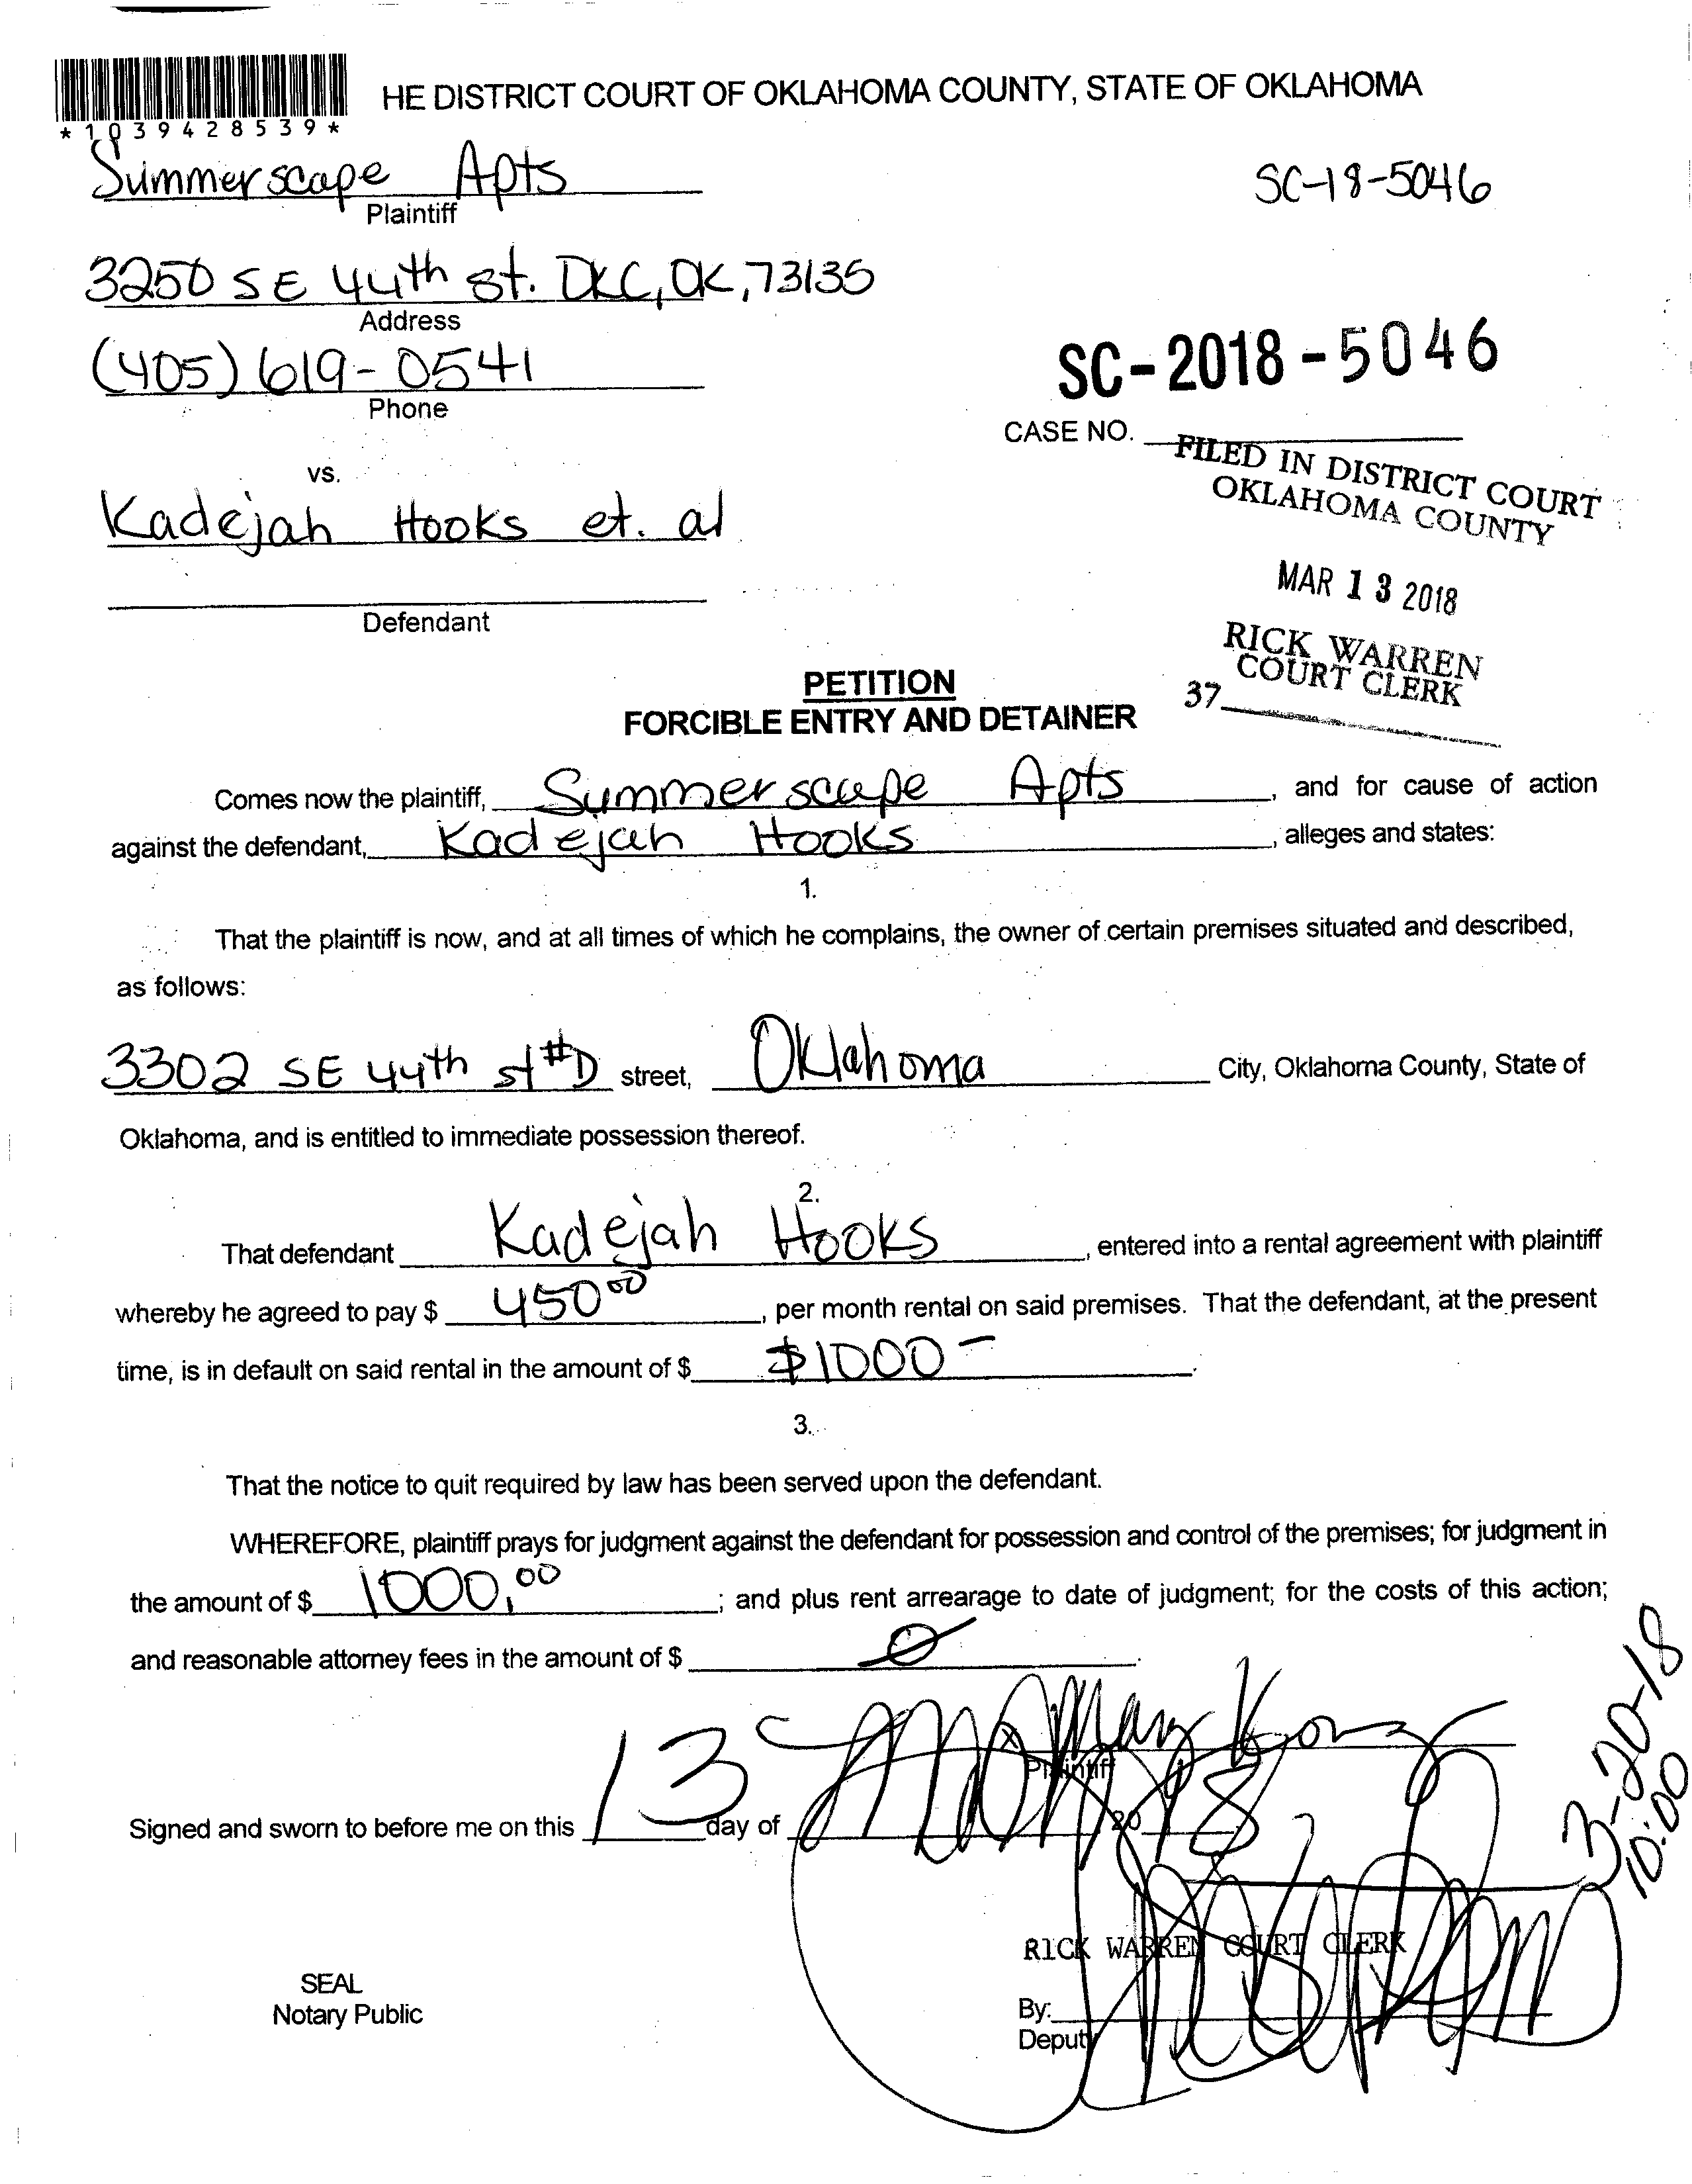 HE DISTRICT COURT OF OKLAHOMA COUNTY, STATE OF OKLAHOMA
*1039428539*
Summerscape Apts
Plaintiff
SC-18-5046
3250 SE 44th st. OKC, OK, 73135
Address
(405) 619-0541
Phone
SC-2018-5046
CASE NO.
vs.
FILED IN DISTRICT COURT
OKLAHOMA COUNTY
Kadejah Hooks et. al
MAR 13 2018
Defendant
RICK WARREN
COURT CLERK
37
PETITION
FORCIBLE ENTRY AND DETAINER
Comes now the plaintiff, Summerscape Apts, and for cause of action
against the defendant, Kadejah Hooks, alleges and states:
1.
That the plaintiff is now, and at all times of which he complains, the owner of certain premises situated and described,
as follows:
3302 SE 44th st #D street, Oklahoma City, Oklahoma County, State of
Oklahoma, and is entitled to immediate possession thereof.
2.
That defendant Kadejah Hooks, entered into a rental agreement with plaintiff
whereby he agreed to pay $ 450 00, per month rental on said premises. That the defendant, at the present
time, is in default on said rental in the amount of $ $1000-.
3.
That the notice to quit required by law has been served upon the defendant.
WHEREFORE, plaintiff prays for judgment against the defendant for possession and control of the premises; for judgment in
the amount of $ 1000.00; and plus rent arrearage to date of judgment; for the costs of this action;
and reasonable attorney fees in the amount of $ 0.
X Mary
Plaintiff
3-20-18
10:00
Signed and sworn to before me on this 13 day of 20 18
RICK WARREN COURT CLERK
SEAL
Notary Public
By:
Deputy